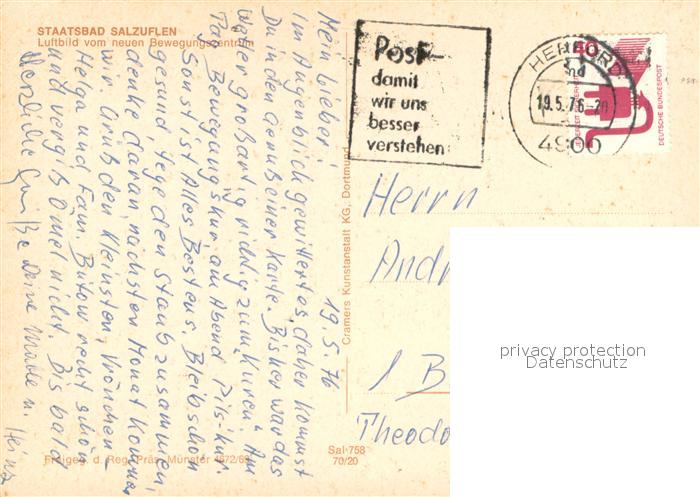 STAATSBAD SALZUFLEN
Luftbild vom neuen Bewegungszentrum
19.5.76
Mein lieber!
Im Augenblick gewittert es, daher kommst
Du in den Genuß einer Karte. Bisher war das
Wetter großartig richtig zum "Kuren". Am
Tag Bewegungskur am Abend Pils-kur
Sonst ist Alles Bestens. Bleib schön
gesund, fege den Staub zusammen,
denke daran nächsten Monat kommen
wir. Grüß den Kleinsten,
Helga und Fam. Bütow recht schön
und vergiß Omel nicht. Bis bald
Herzliche Grüße Deine u. Heinz
Freigeg. d. Reg. Präs. Münster
Cramers Kunstanstalt KG, Dortmund
Sal-758
70/20
Post-
damit
wir uns
besser
verstehen
HERFORD
19.5.76-20
4900
DEUTSCHE BUNDESPOST
Herrn
Andr
1 B
Theodo
privacy protection
Datenschutz